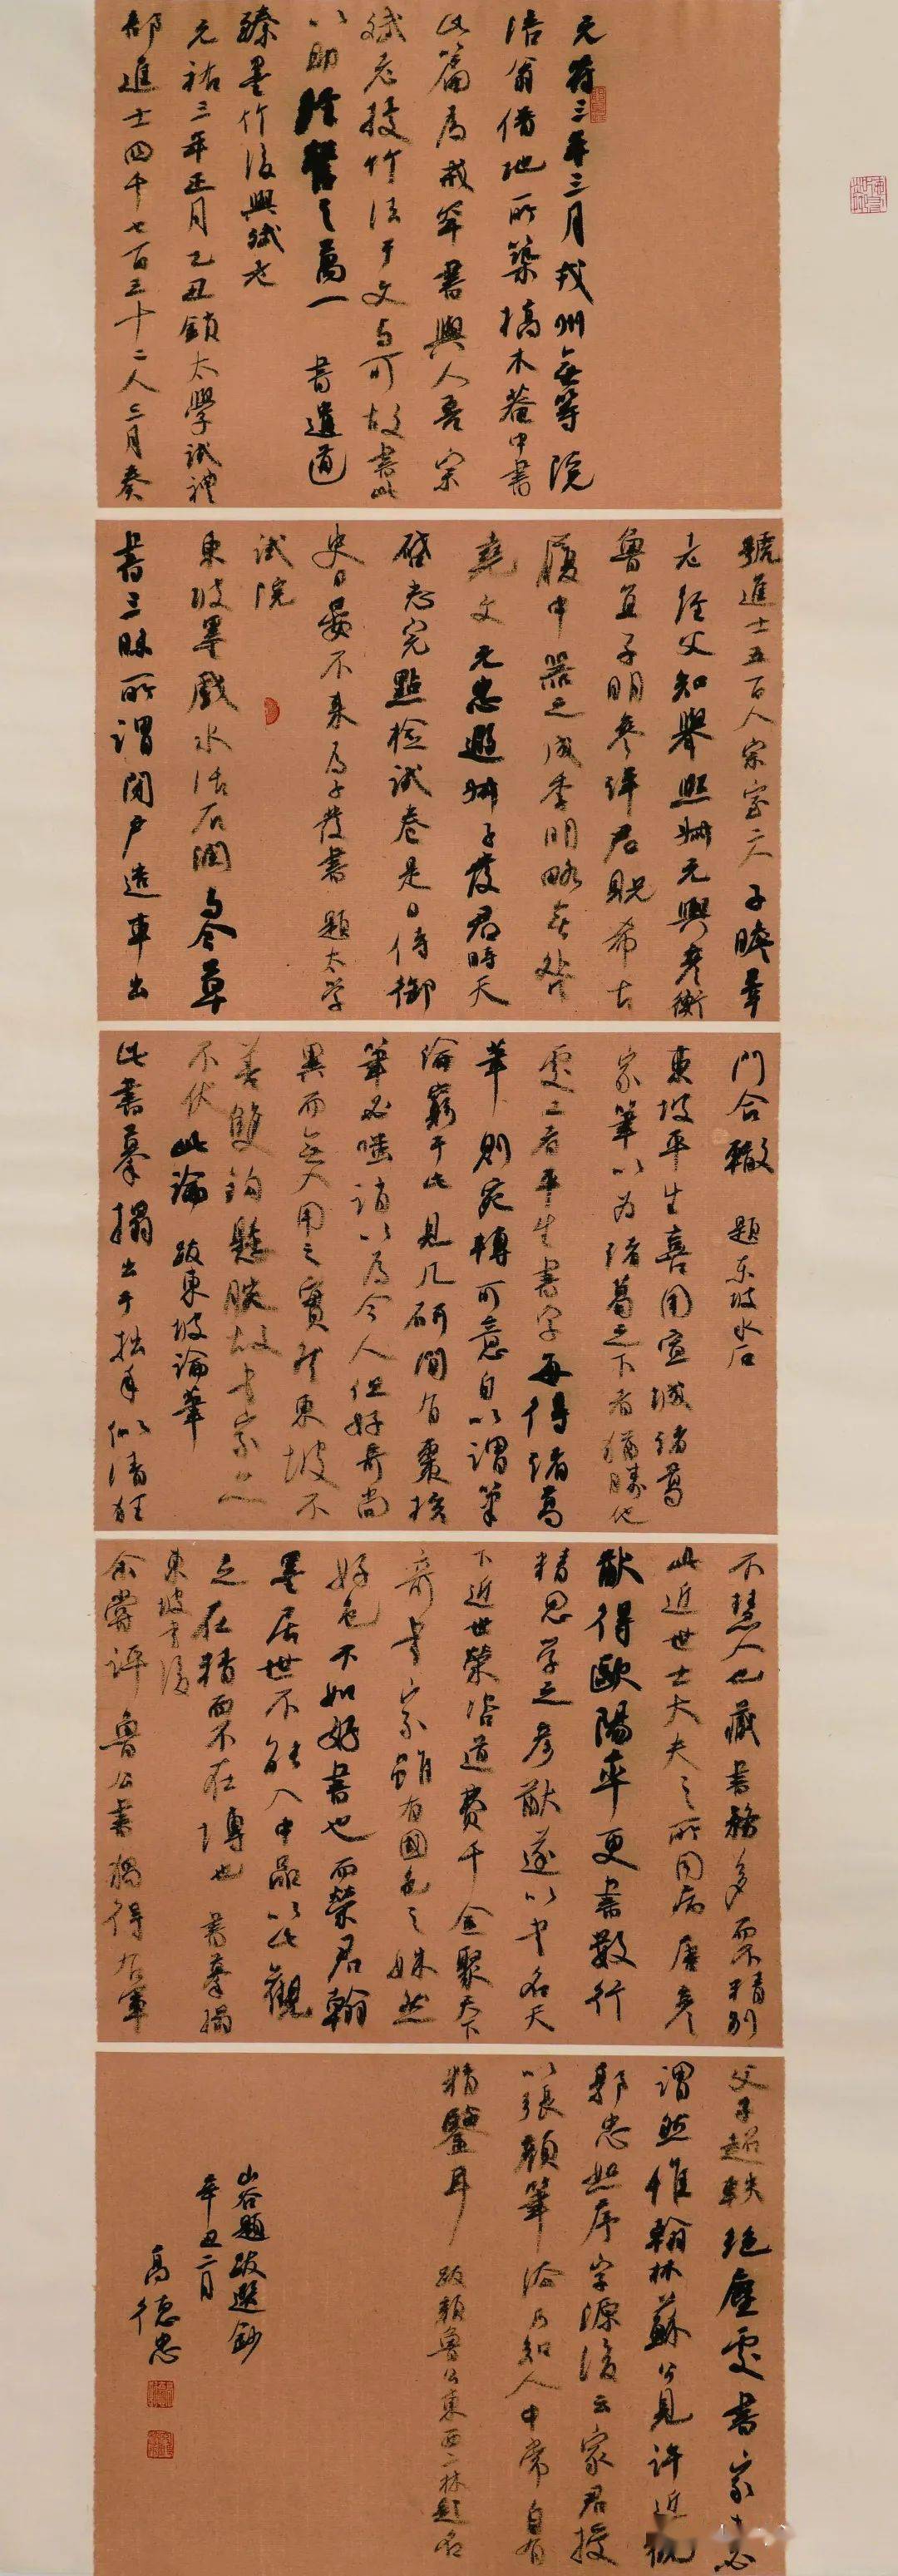 元符三年三月戎州無等院
涪翁借地所築槁木菴中書
此篇為戒葷書與人吾宗
斌老投竹法于文与可故書此
以助於磬之萬一　書遺道
臻墨竹後與斌老
元祐三年正月乙丑鎖太學試禮
部進士四千七百三十二人三月奏
號進士五百人宗室二人子瞻莘
老經父知舉熙叔元輿彥衡
魯直子明參詳君貺希古
履中器之成季明略無咎
堯文元忠遐叔子發君時天
啓志完點檢試卷是日侍御
史日晏不來為子發書　題太学
試院
東坡墨戲水活石潤与今草
書三昧所謂閉戶造車出
門合轍　題東坡水石
東坡平生喜用宣城諸葛
家筆以為諸葛之下者猶勝他
處工者平生書字每得諸葛
筆則宛轉可意自以謂筆
論窮于此見几研間有棗核
筆必嗤誚以為今人但好奇尚
異而無入用之實然東坡不
善雙鈎懸腕故書家亦
不伏此論　跋東坡論筆
此書摹搨出于拙手似清狂
不慧人也藏書務多而不精別
此近世士大夫之所同病唐彥
猷得歐陽率更書數行
精思学之彥猷遂以書名天
下近世榮咨道費千金聚天下
奇書家雖有國色之姝然
好色不如好書也而榮君翰
墨居世不能入中品以此觀
之在精而不在博也　書摹搨
東坡書後
余嘗評魯公書獨得右軍
父子超軼絕塵處書家未必
謂然惟翰林蘇公見許近觀
郭忠恕序字源後云家君授
以張顏筆法乃知人中常自有
精鑒耳　跋顏魯公東西二林題名
山谷題跋選鈔
辛丑二月
高德忠